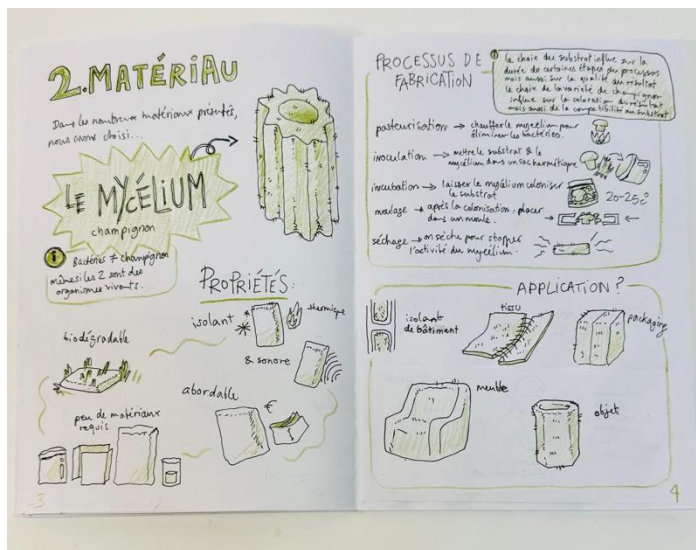 2.MATÉRIAU
Dans les nombreux matériaux présentés,
nous avons choisi...
LE MYCÉLIUM
champignon
Bactéries ≠ champignon
même si les 2 sont des
organismes vivants.
PROPRIÉTÉS:
isolant
thermique
& sonore
biodégradable
abordable
€
peu de matériaux
requis
3
PROCESSUS DE
FABRICATION
le choix du substrat influe sur la
durée de certaines étapes du processus
mais aussi sur la qualité du résultat
le choix de la variété de champignon
influe sur la coloration du résultat
mais aussi de la compatibilité au substrat
pasteurisation → chauffer le mycélium pour
éliminer les bactéries.
inoculation → mettre le substrat & le
mycélium dans un sac hermétique
incubation → laisser le mycélium coloniser
le substrat
20-25°
moulage → après la colonisation, placer
dans un moule.
séchage → on sèche pour stopper
l'activité du mycélium.
APPLICATION?
isolant
de bâtiment
tissu
packaging
meuble
objet
4